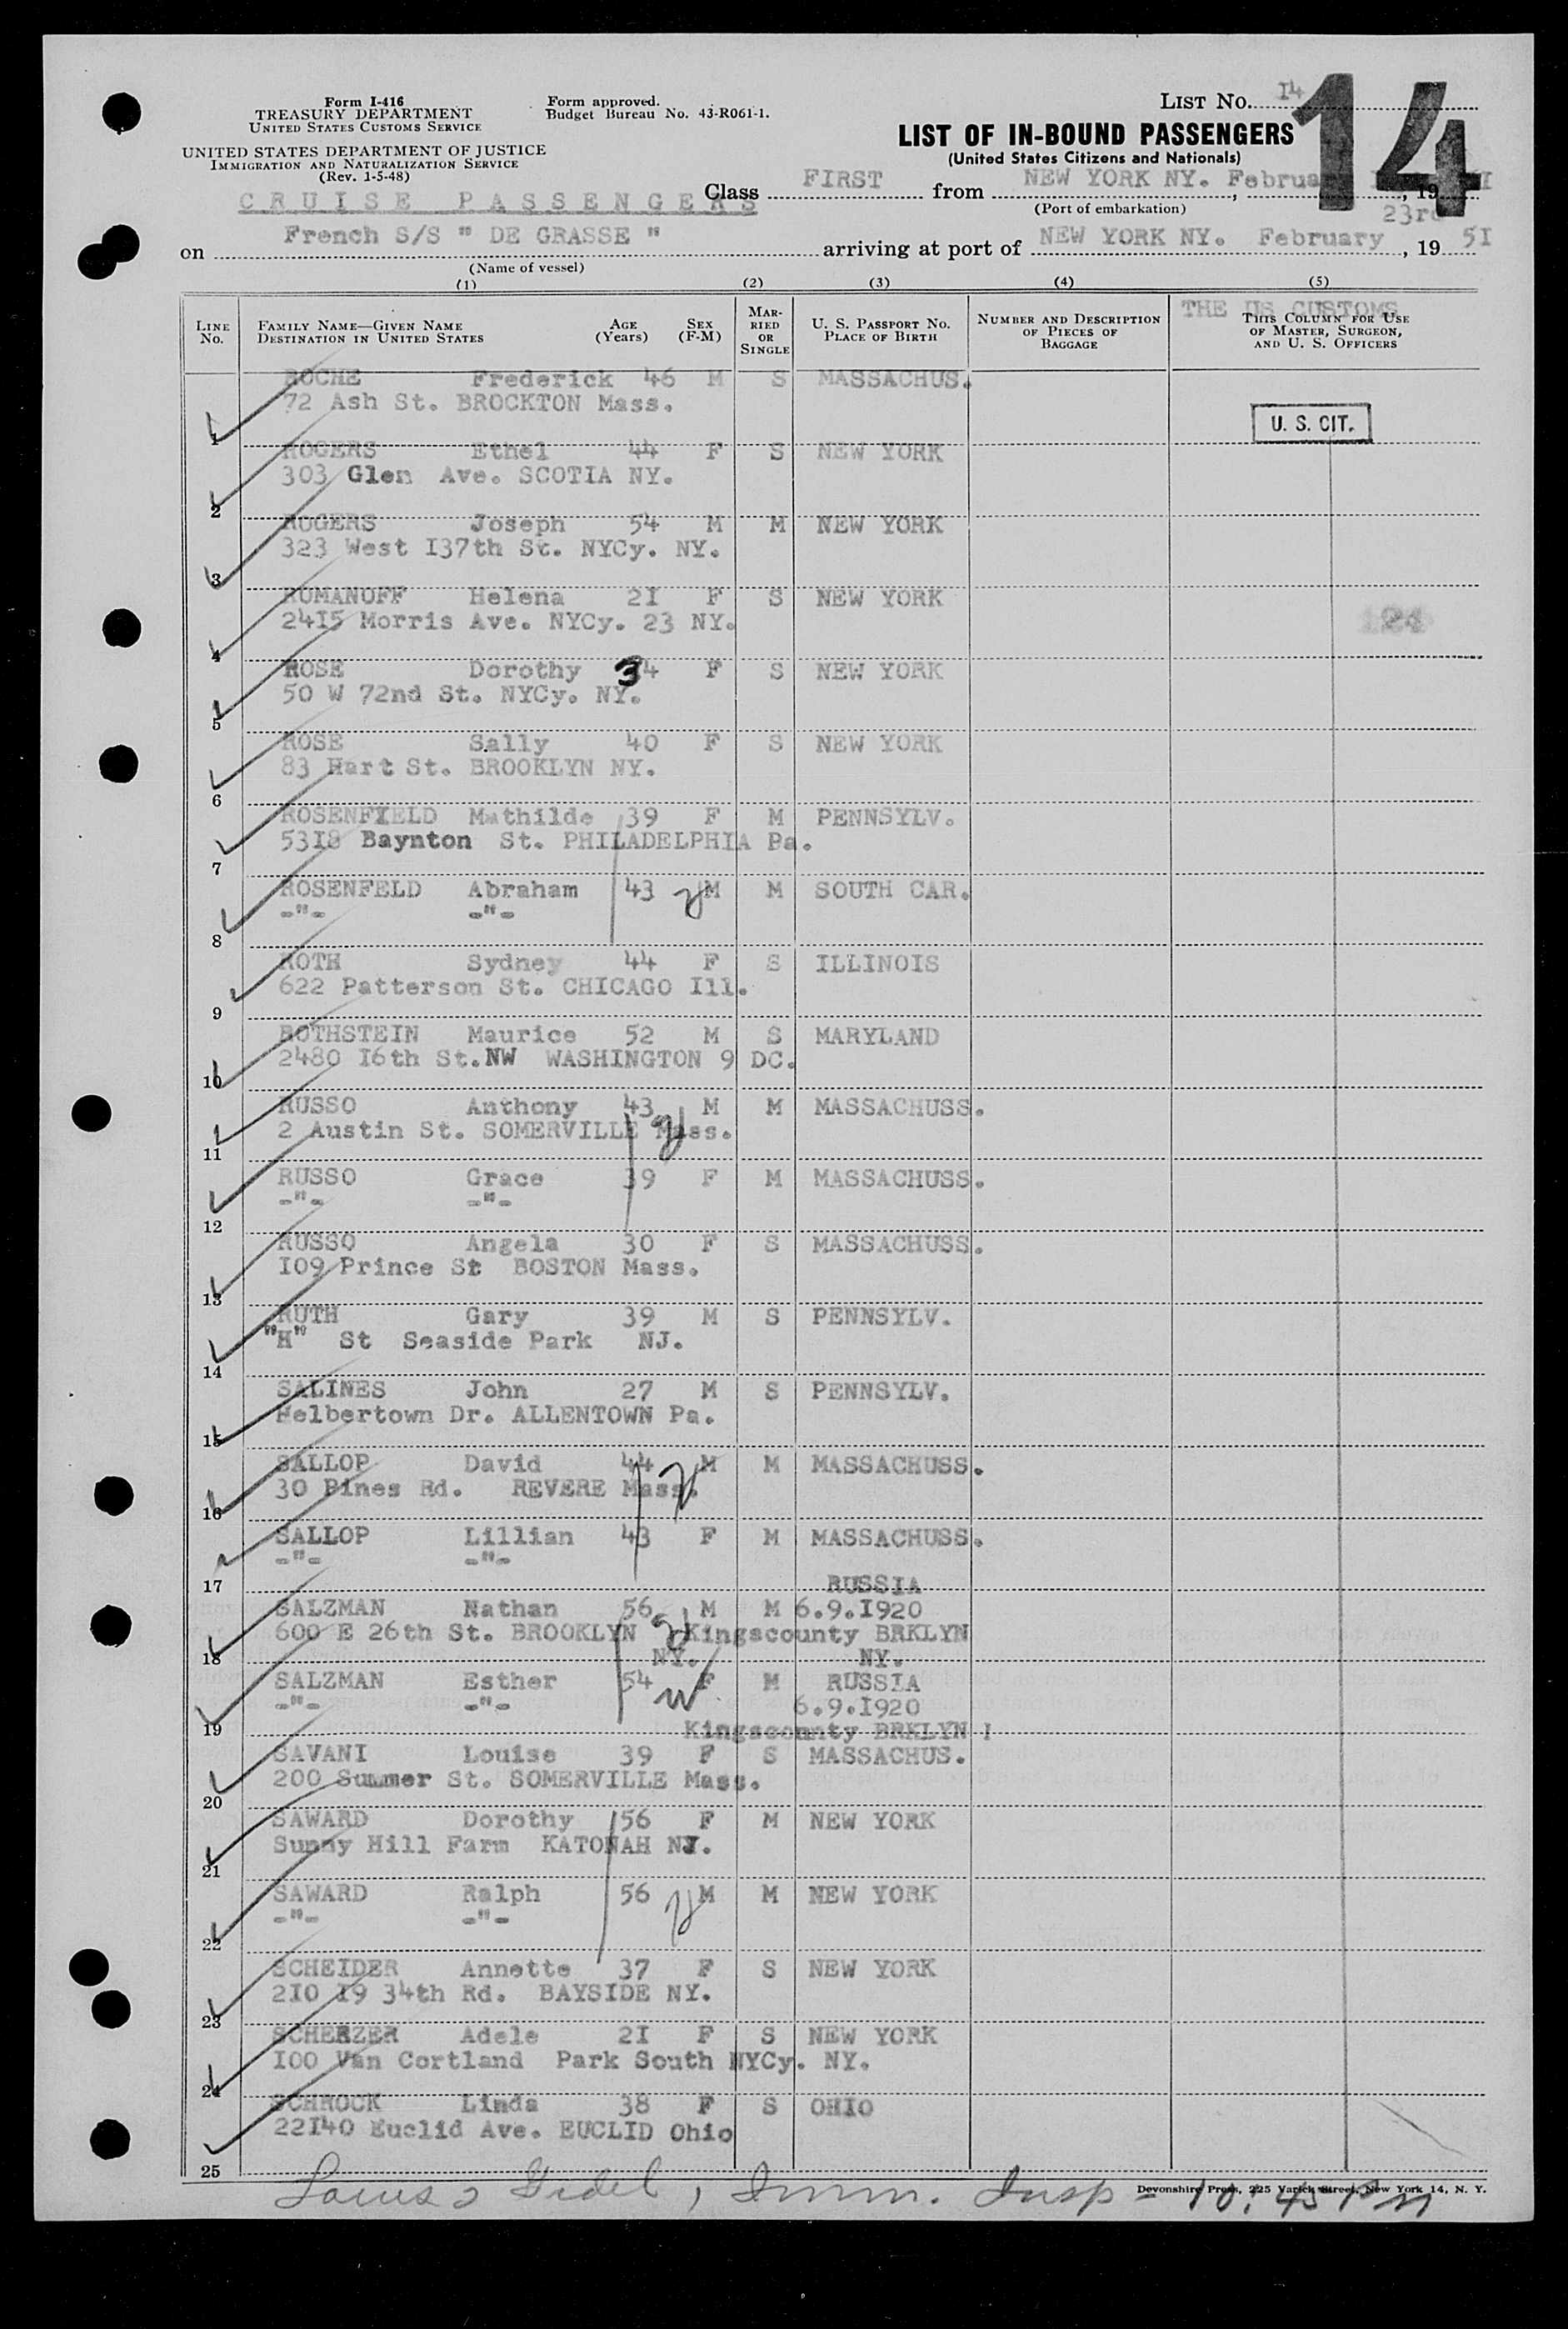 Form I-416
TREASURY DEPARTMENT
UNITED STATES CUSTOMS SERVICE
UNITED STATES DEPARTMENT OF JUSTICE
IMMIGRATION AND NATURALIZATION SERVICE
(Rev. 1-5-48)
Form approved.
Budget Bureau No. 43-R061-1.
LIST No. I4
14
LIST OF IN-BOUND PASSENGERS
(United States Citizens and Nationals)
CRUISE PASSENGERS
Class FIRST from NEW YORK NY. February , 19
(Port of embarkation)
23rd
on French S/S " DE GRASSE " arriving at port of NEW YORK NY. February , 19 5I
(Name of vessel)
(1) (2) (3) (4) (5)
LINE No.
FAMILY NAME—GIVEN NAME
DESTINATION IN UNITED STATES
AGE (Years)
SEX (F-M)
MARRIED OR SINGLE
U. S. PASSPORT NO.
PLACE OF BIRTH
NUMBER AND DESCRIPTION OF PIECES OF BAGGAGE
THE US CUSTOMS
THIS COLUMN FOR USE OF MASTER, SURGEON, AND U. S. OFFICERS
ROCHE Frederick 46 M S MASSACHUS.
72 Ash St. BROCKTON Mass.
1
U. S. CIT.
ROGERS Ethel 44 F S NEW YORK
303 Glen Ave. SCOTIA NY.
2
ROGERS Joseph 54 M M NEW YORK
323 West I37th St. NYCy. NY.
3
ROMANOFF Helena 2I F S NEW YORK
24I5 Morris Ave. NYCy. 23 NY.
4
ROSE Dorothy 34 F S NEW YORK
50 W 72nd St. NYCy. NY.
5
ROSE Sally 40 F S NEW YORK
83 Hart St. BROOKLYN NY.
6
ROSENFIELD Mathilde 39 F M PENNSYLV.
53I8 Baynton St. PHILADELPHIA Pa.
7
ROSENFELD Abraham 43 M M SOUTH CAR.
-"- -"-
8
ROTH Sydney 44 F S ILLINOIS
622 Patterson St. CHICAGO Ill.
9
ROTHSTEIN Maurice 52 M S MARYLAND
2480 I6th St.NW WASHINGTON 9 DC.
10
RUSSO Anthony 43 M M MASSACHUSS.
2 Austin St. SOMERVILLE Mass.
11
RUSSO Grace 39 F M MASSACHUSS.
-"- -"-
12
RUSSO Angela 30 F S MASSACHUSS.
I09 Prince St BOSTON Mass.
13
RUTH Gary 39 M S PENNSYLV.
"H" St Seaside Park NJ.
14
SALINES John 27 M S PENNSYLV.
Helbertown Dr. ALLENTOWN Pa.
15
SALLOP David 44 M M MASSACHUSS.
30 Pines Rd. REVERE Mass.
16
SALLOP Lillian 43 F M MASSACHUSS.
-"- -"-
17
RUSSIA
SALZMAN Nathan 56 M M 6.9.I920
600 E 26th St. BROOKLYN Kingscounty BRKLYN
18 NY. NY.
SALZMAN Esther 54 F M RUSSIA
-"- -"- 6.9.I920
19 Kingscounty BRKLYN !
SAVANI Louise 39 F S MASSACHUS.
200 Summer St. SOMERVILLE Mass.
20
SAWARD Dorothy 56 F M NEW YORK
Sunny Hill Farm KATONAH NJ.
21
SAWARD Ralph 56 M M NEW YORK
-"- -"-
22
SCHEIDER Annette 37 F S NEW YORK
2I0 I9 34th Rd. BAYSIDE NY.
23
SCHERZER Adele 2I F S NEW YORK
I00 Van Cortland Park South NYCy. NY.
24
SCHROCK Linda 38 F S OHIO
22I40 Euclid Ave. EUCLID Ohio
25
Imm. Insp - 10:45 PM
Devonshire Press, 225 Varick Street, New York 14, N. Y.